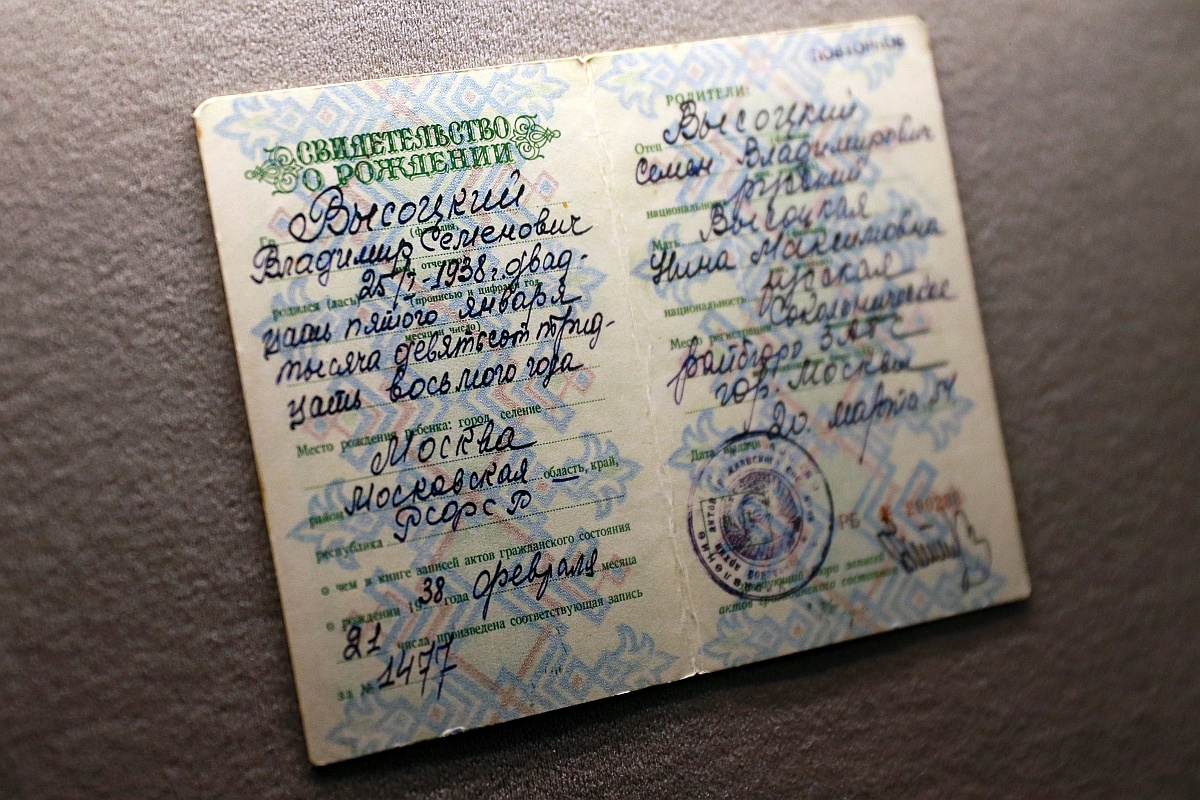 СВИДЕТЕЛЬСТВО
О РОЖДЕНИИ
Высоцкий
Владимир Семенович
родился (лась) 25/I-1938 г. двад-
(прописью и цифрами год,
цать пятого января
месяц и число)
тысяча девятьсот трид-
цать восьмого года
Место рождения ребенка: город, селение
Москва
район Московская область, край,
республика РСФСР
о чем в книге записей актов гражданского состояния
о рождении 1938 года февраля месяца
21 числа произведена соответствующая запись
за № 1477
ПОВТОРНОЕ
РОДИТЕЛИ:
Высоцкий
Отец
Семен Владимирович
русский
национальность
Высоцкая
Мать
Нина Максимовна
русская
национальность
Сокольническое
Место регистрации
райбюро ЗАГС
гор. Москвы
20. марта 54
Дата выдачи
РБ
актов гражданского состояния